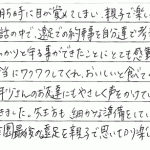 朝5時に目が覚めてしまい、親子で楽し
話の中で、遠足での約束事を自分達で考
っかりと守る事ができたことにとても感動
当にワクワクしてくれ、おいしいと食べて
りさんのお友達にもやさしく声をかけて
きました。先生方も細かな準備をしてい
園最後の遠足を親子で思いっきり楽し